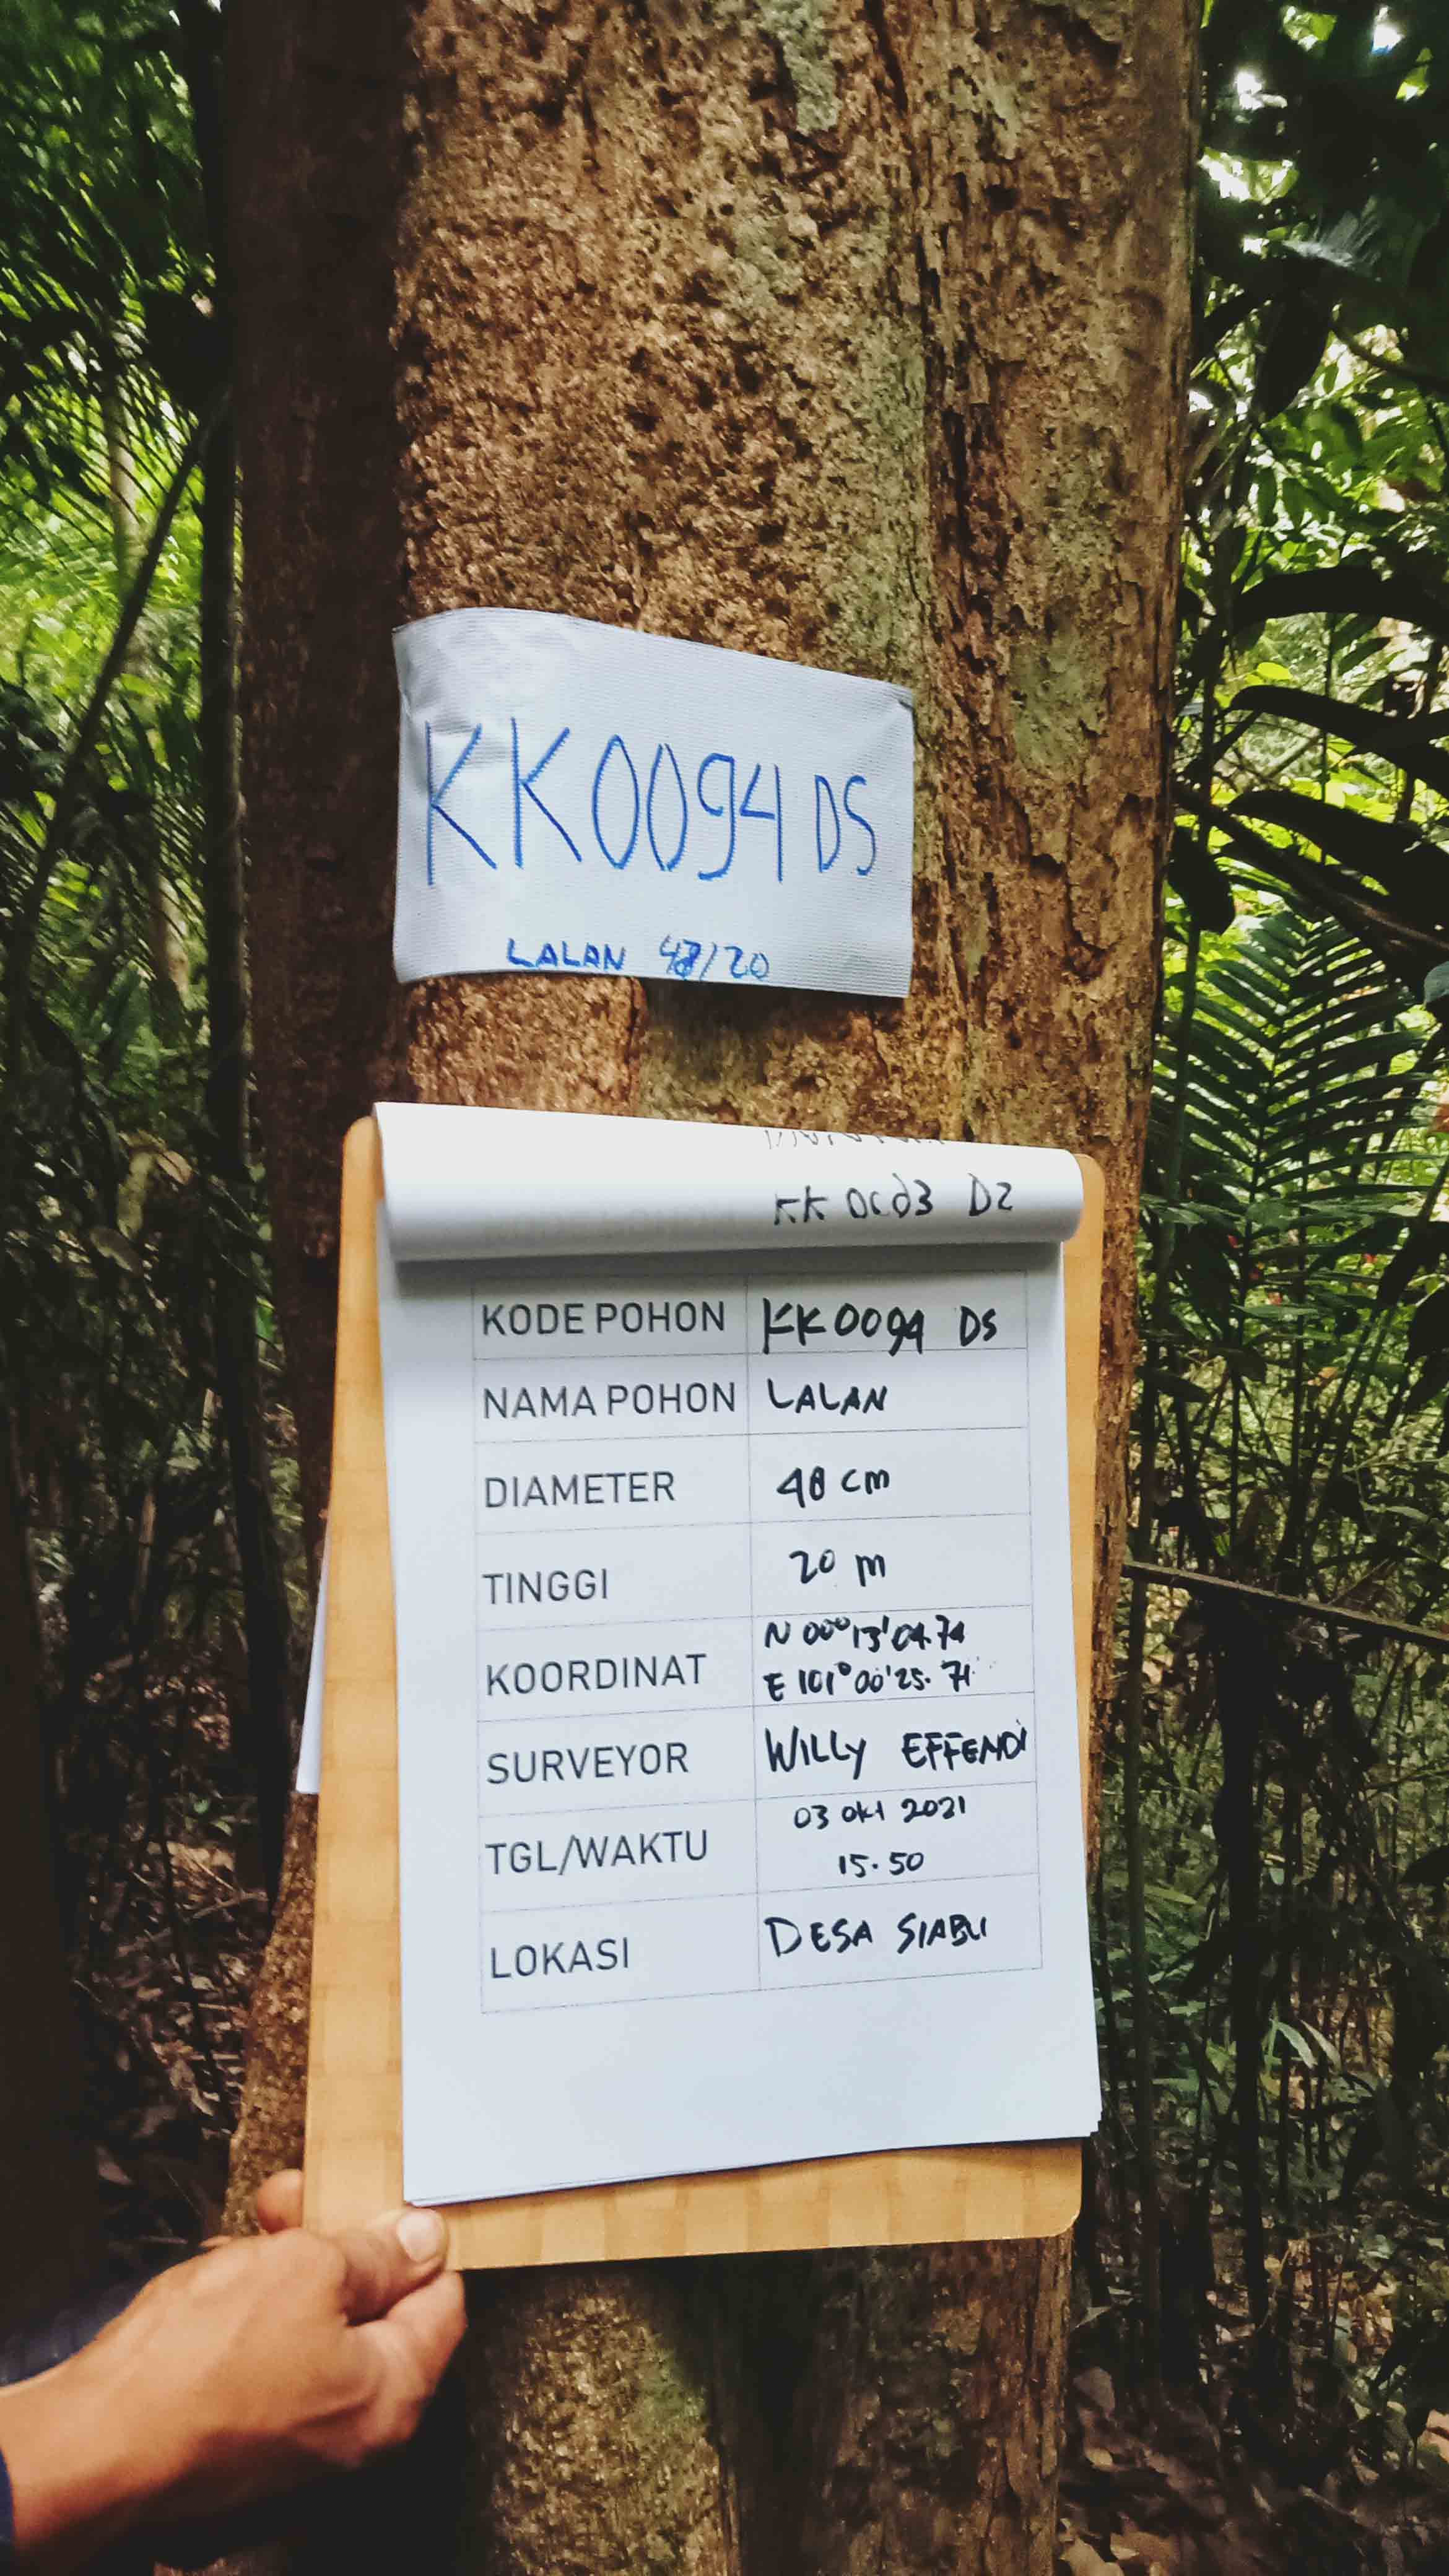 KK0094 DS
LALAN 48/20
KODE POHON KK0094 DS
NAMA POHON LALAN
DIAMETER 48 cm
TINGGI 20 m
KOORDINAT N 00°13'04.74
E 101°00'25.71
SURVEYOR WILLY EFFENDI
TGL/WAKTU 03 okt 2021
15.50
LOKASI DESA SIABU